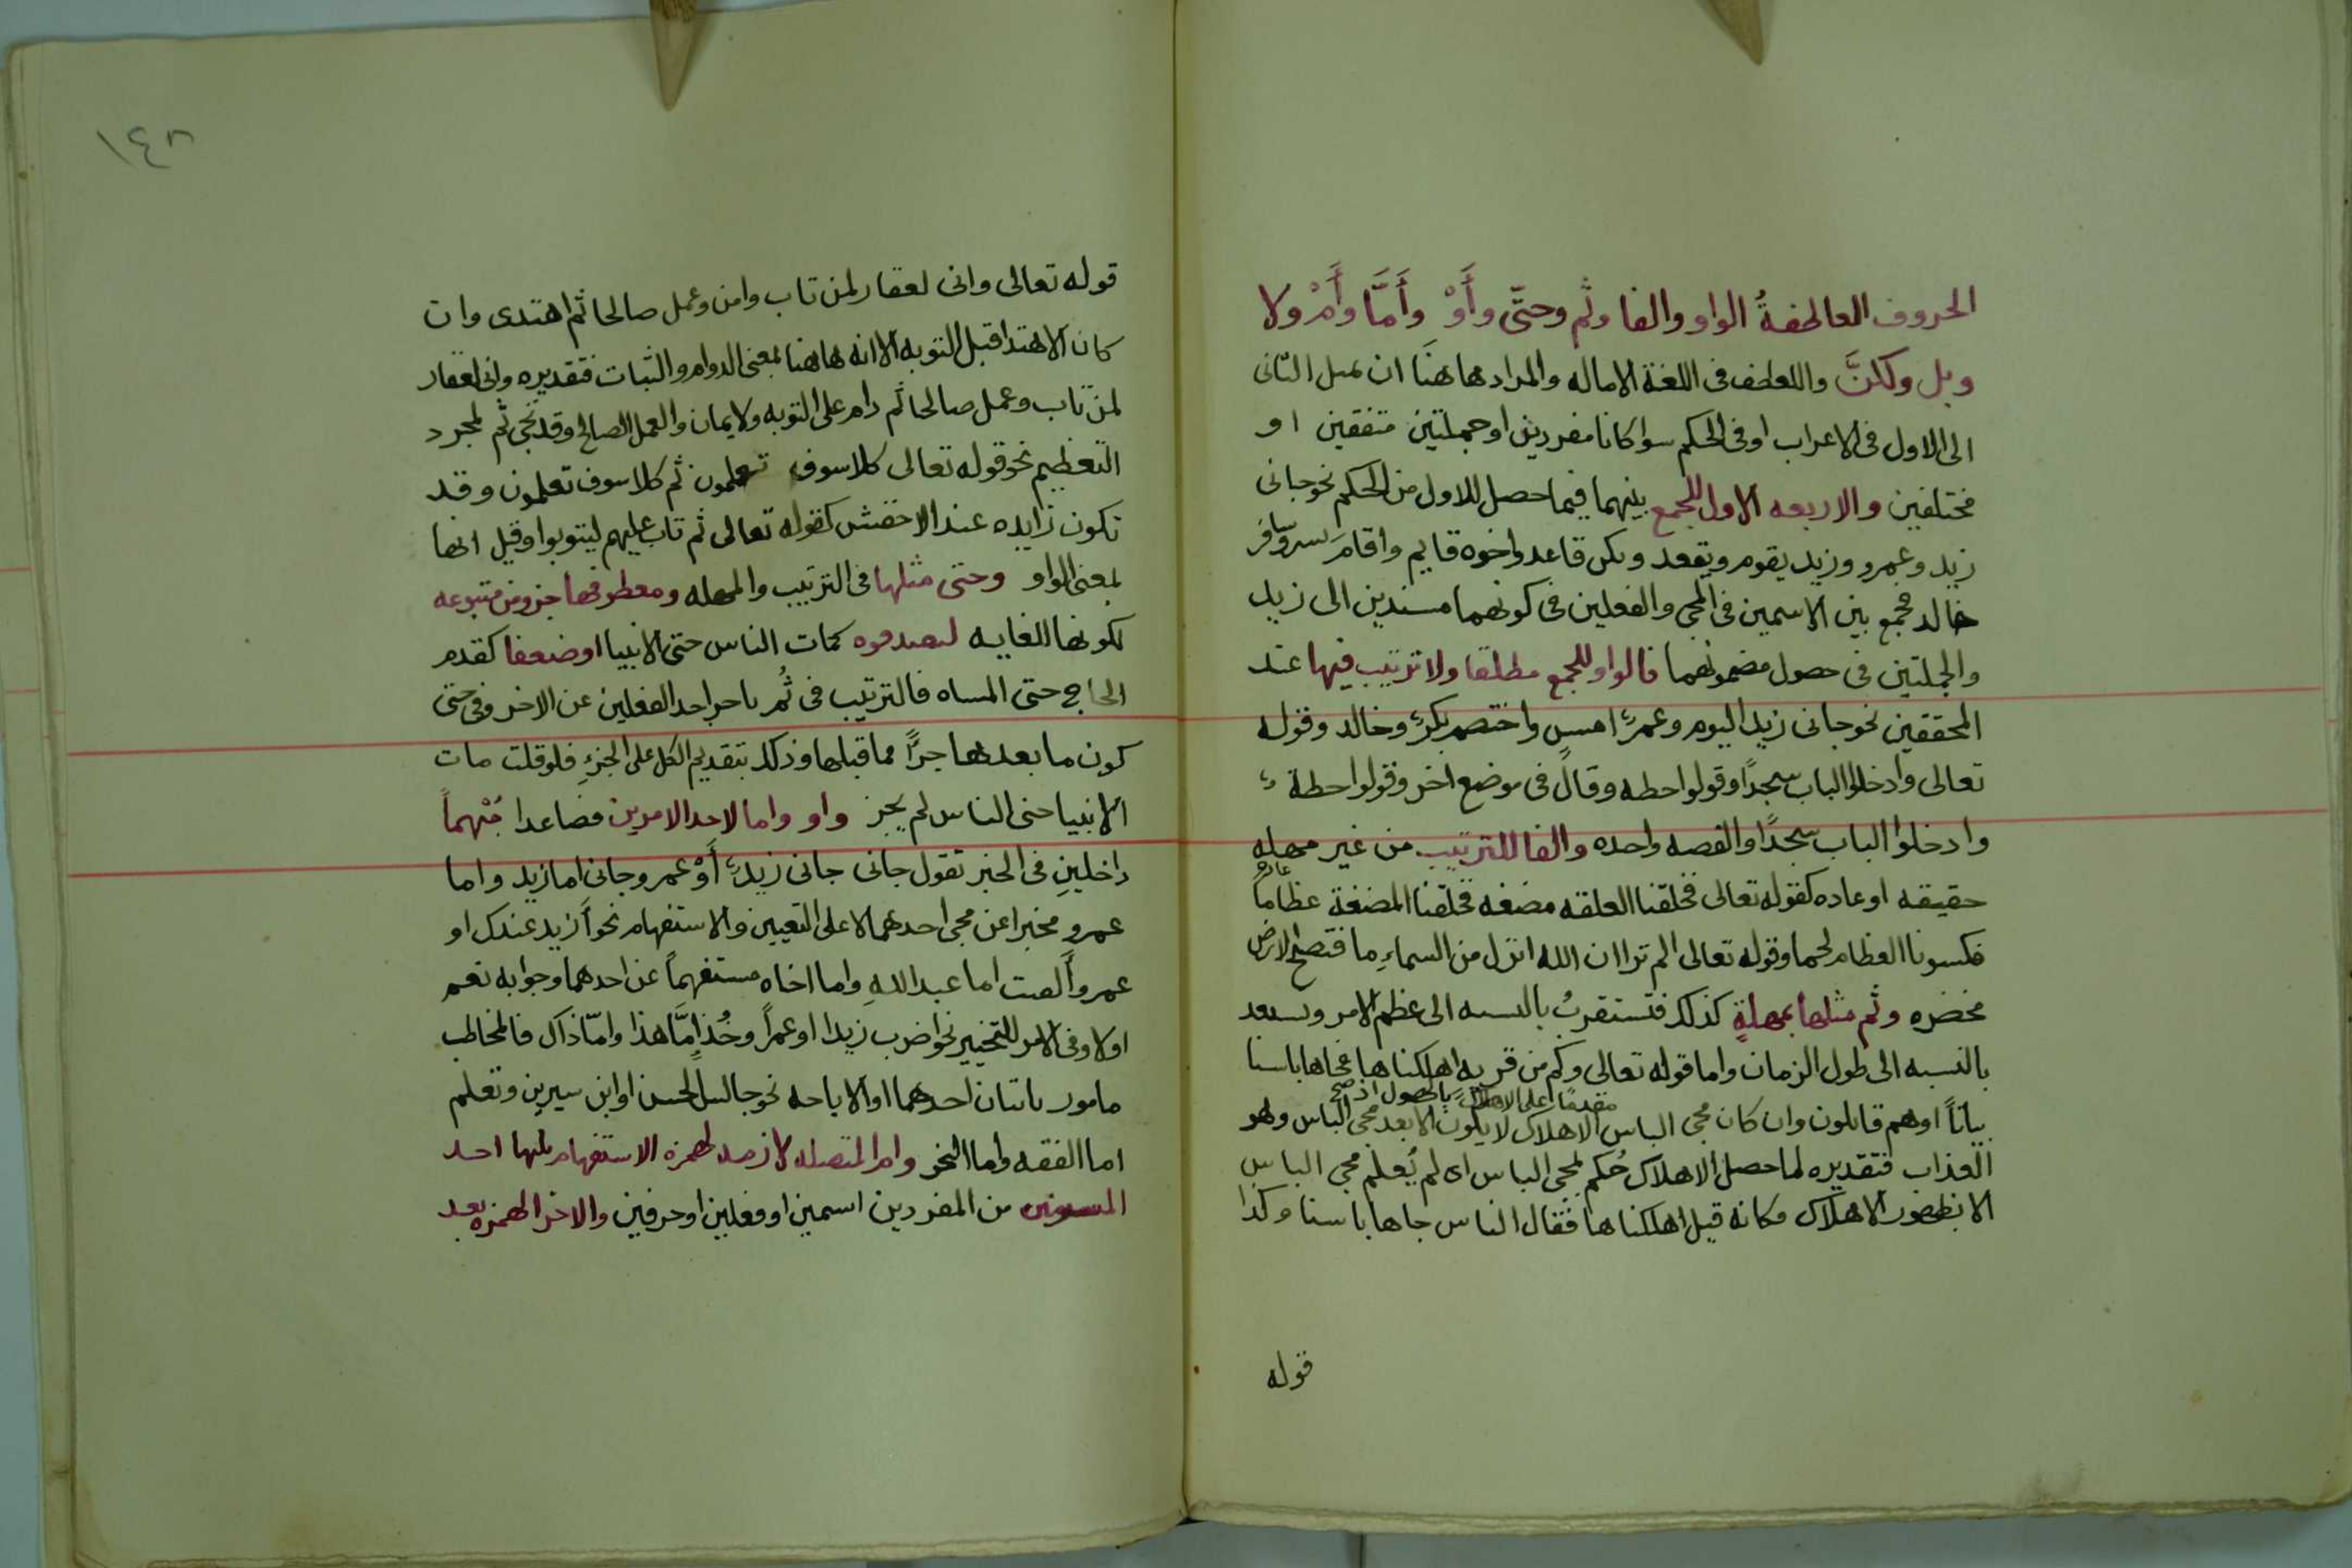 الحروف العاطفةُ الواو والفا وثم وحتّى وأَوْ وأَمَّا وأَمْ ولا
وبل ولكنَّ واللعطف فى اللغة الاماله والمراد هاهنَا ان يميل الثانى
الى الاول فى الاعراب او فى الحكم سوا كانا مفردين او جملتين متفقين او
مختلفين والاربعه الاول للجمع بينهما فيما حصل للاول من الحكم نحو جانى
زيد وعمرو وزيد يقوم ويقعد وبكر قاعد واخوه قايم واقام بسر وسافر
خالد فجمع بين الاسمين فى المجى والفعلين فى كونهما مسندين الى زيد
والجملتين فى حصول مضمونهما فالواو للجمع مطلقا ولا ترتيب فيها عند
المحققين نحو جانى زيد اليوم وعمرٌ امسِ واختصم بكرٌ وخالد وقوله
تعالى وادخلوا الباب سجدًا وقولوا حطه وقال فى موضع اخر وقولوا حطة
وادخلوا الباب سجدًا والقصه واحده والفا للترتيب من غير مهله
حقيقه او عاده كقوله تعالى فخلقنا العلقه مضغه فخلقنا المضغة عظاما
فكسونا العظام لحما وقوله تعالى الم تر ان الله انزل من السماءِ ما فتصبح الارض
مخضره وثم مثلها بمهلةٍ كذلك فتستقربُ بالنسبه الى عظم الامر وتستبعد
بالنسبه الى طول الزمان واما قوله تعالى وكم من قريه اهلكناها فجاها باسنا
مقدمًا على الاهلاك بالحصول اذ صح
بياتاً اوهم قائلون وان كان مجى الباس الاهلاك لا يكون الا بعد مجى الباس وهو
العذاب فتقديره لما حصل الاهلاك حُكم بمجى الباس اى لم يُعلم مجى الباس
الا بظهور الاهلاك فكانه قيل اهلكناها فقال الناس جاها باسنا وكذا
قوله
١٤٨
قوله تعالى وانى لغفار لمن تاب وامن وعمل صالحا ثم اهتدى وان
كان الاهتدا قبل التوبه الا انه هاهنا بمعنى الدوام والثبات فتقديره وانى لغفار
لمن تاب وعمل صالحا ثم دام على التوبه ولايمان والعمل الصالح وقد تجى ثم لمجرد
التعظيم نحو قوله تعالى كلا سوف تعلمون ثم كلا سوف تعلمون وقد
تكون زايده عند الاخفش كقوله تعالى ثم تاب عليهم ليتوبوا وقيل انها
بمعنى الواو وحتى مثلها فى الترتيب والمهله ومعطوفها جزو من متبوعه
لكونها للغايه كمات الناس حتى الانبيا او ضعفا كقدم
الحاج حتى المساه فالترتيب فى ثُم باحد الفعلين عن الاخر وفى حتى
كون ما بعدها جزًا مما قبلها وذلك بتقديم الكل على الجزءِ فلو قلت مات
الانبيا حتى الناس لم يجز واو واما لاحد الامرين فصاعدا مُبْهماً
داخلينِ فى الخبر تقول جانى جانى زيدٌ أَوْ عمرو وجانى اما زيد واما
عمرو مخبرا عن مجى احدهما لا على التعيين والاستفهام نحو أزيد عندك او
عمرو ألقيت اما عبد اللهِ واما اخاه مستفهماً عن احدهما وجوابه نعم
اولا وفى الامر للتخيير نحو اضرب زيدا او عمراً وخُذ امَّا هذا وامّا ذاك فالمخاطب
مامور باتيان احدهما او الاباحه نحو جالس الحسن او ابن سيرين وتعلم
اما الفقه واما النحو وام المتصله لازمه لهمزه الاستفهام يليها احد
المستويين من المفردين اسمين او فعلين او حرفين والاخر الهمزه بعد